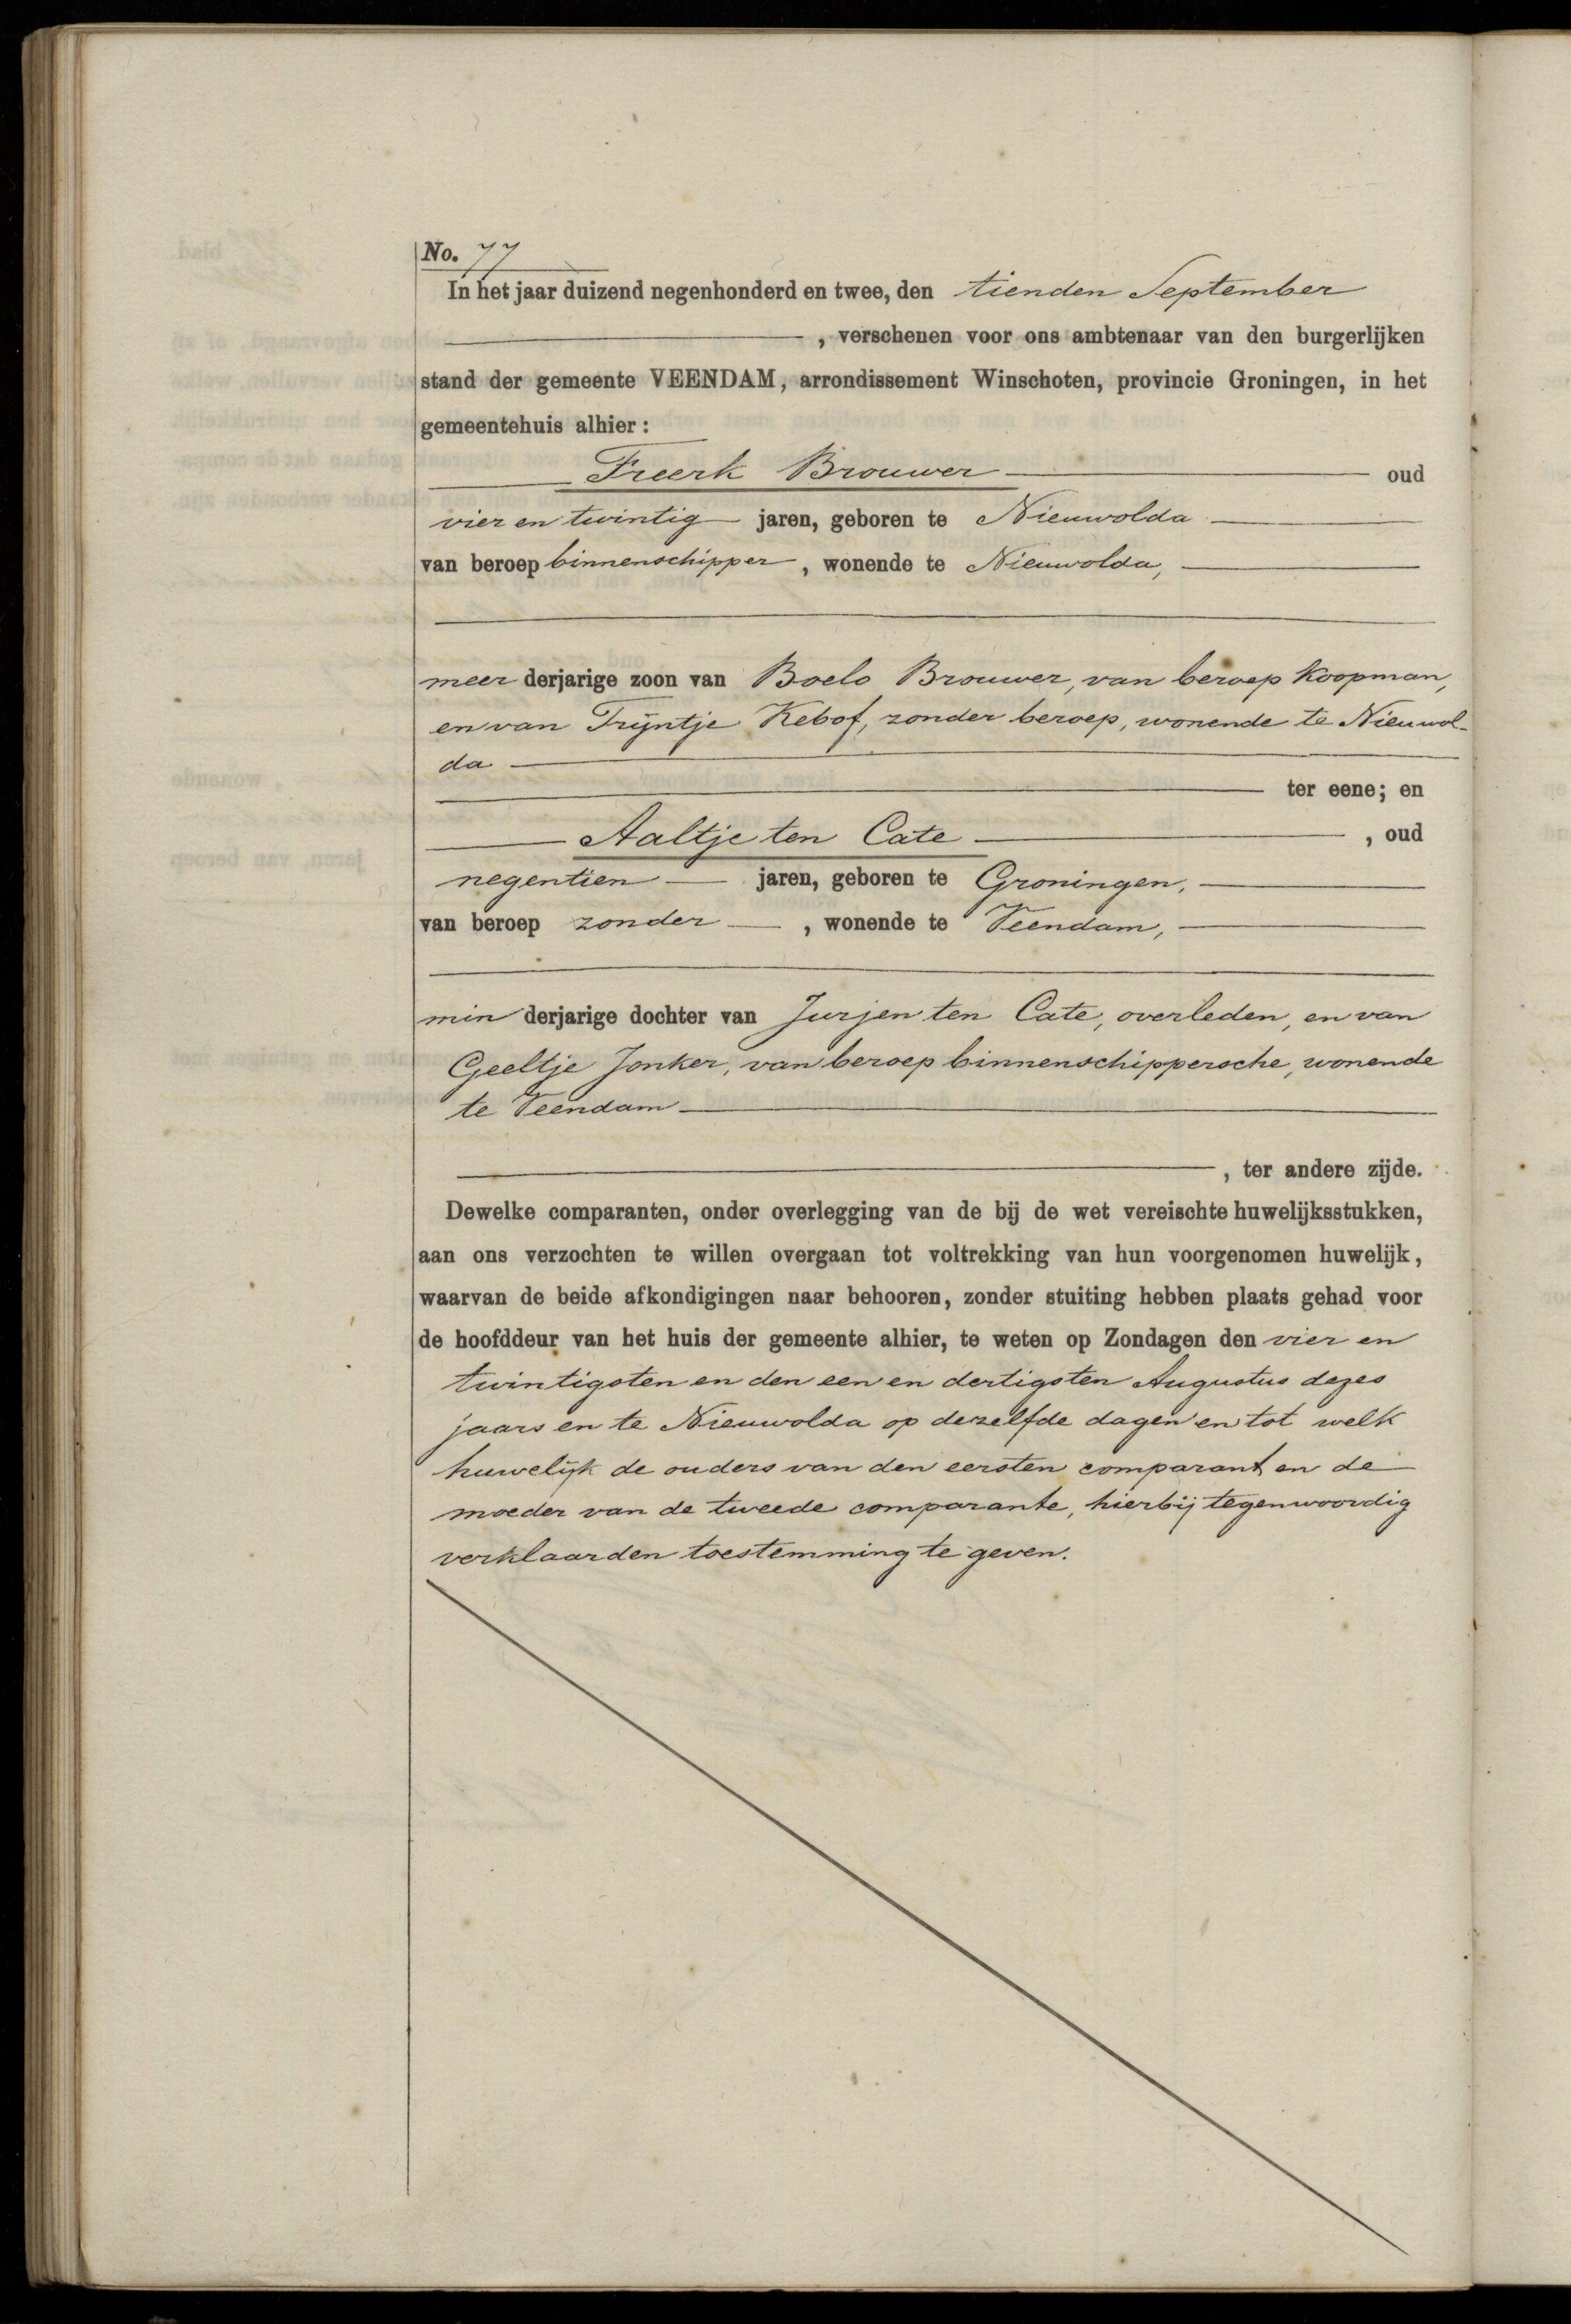 No. 77
In het jaar duizend negenhonderd en twee, den tienden September
, verschenen voor ons ambtenaar van den burgerlijken
stand der gemeente VEENDAM, arrondissement Winschoten, provincie Groningen, in het
gemeentehuis alhier:
Freerk Brouwer oud
vier en twintig jaren, geboren te Nieuwolda
van beroep binnenschipper, wonende te Nieuwolda,
meerderjarige zoon van Boelo Brouwer, van beroep koopman,
en van Trijntje Kebof, zonder beroep, wonende te Nieuwol-
da
ter eene; en
Aaltje ten Cate, oud
negentien jaren, geboren te Groningen,
van beroep zonder, wonende te Veendam,
minderjarige dochter van Jurjen ten Cate, overleden, en van
Geeltje Jonker, van beroep binnenschippersche, wonende
te Veendam
, ter andere zijde.
Dewelke comparanten, onder overlegging van de bij de wet vereischte huwelijksstukken,
aan ons verzochten te willen overgaan tot voltrekking van hun voorgenomen huwelijk,
waarvan de beide afkondigingen naar behooren, zonder stuiting hebben plaats gehad voor
de hoofddeur van het huis der gemeente alhier, te weten op Zondagen den vier en
twintigsten en den een en dertigsten Augustus dezes
jaars en te Nieuwolda op dezelfde dagen en tot welk
huwelijk de ouders van den eersten comparant en de
moeder van de tweede comparante, hierbij tegenwoordig
verklaarden toestemming te geven.